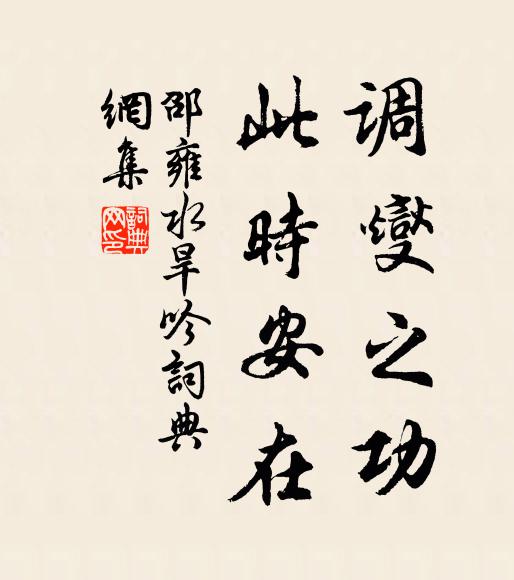 调燮之功
此時安在
邵雍水旱吟詞典
網集
詞典
网印